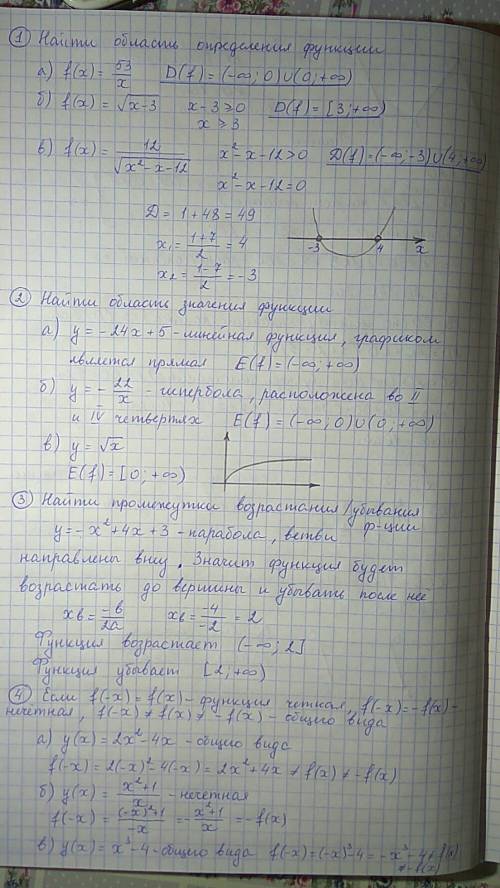 ① Найти область определения функции
а) f(x) = 53/x   D(f) = (-∞; 0)∪(0; +∞)
б) f(x) = √x-3   x-3 ≥ 0   D(f) = [3; +∞)
x ≥ 3
в) f(x) = 12/√x²-x-12   x²-x-12>0   D(f) = (-∞; -3)∪(4; +∞)
x²-x-12=0
D = 1+48 = 49
x₁ = 1+7/2 = 4
x₂ = 1-7/2 = -3
-3 4 x
② Найти область значения функции
а) y = -24x+5 - линейная функция, графиком
является прямая   E(f) = (-∞; +∞)
б) y = -22/x - гипербола, расположена во II
и IV четвертях   E(f) = (-∞; 0)∪(0; +∞)
в) y = √x
E(f) = [0; +∞)
③ Найти промежутки возрастания/убывания
ф-ции
y = -x²+4x+3 - парабола, ветви
направлены вниз. Значит функция будет
возрастать до вершины и убывать после неё
xв = -b/2a   xв = -4/-2 = 2
Функция возрастает (-∞; 2]
Функция убывает [2; +∞)
④ Если f(-x) = f(x) - функция четная, f(-x) = -f(x) -
нечётная, f(-x) ≠ f(x) ≠ -f(x) - общего вида
а) y(x) = 2x²-4x - общего вида
f(-x) = 2(-x)²-4(-x) = 2x²+4x ≠ f(x) ≠ -f(x)
б) y(x) = x²+1/x - нечетная
f(-x) = (-x)²+1/-x = -x²+1/x = -f(x)
в) y(x) = x³-4 - общего вида   f(-x) = (-x)³-4 = -x³-4 ≠ f(x)
≠ -f(x)